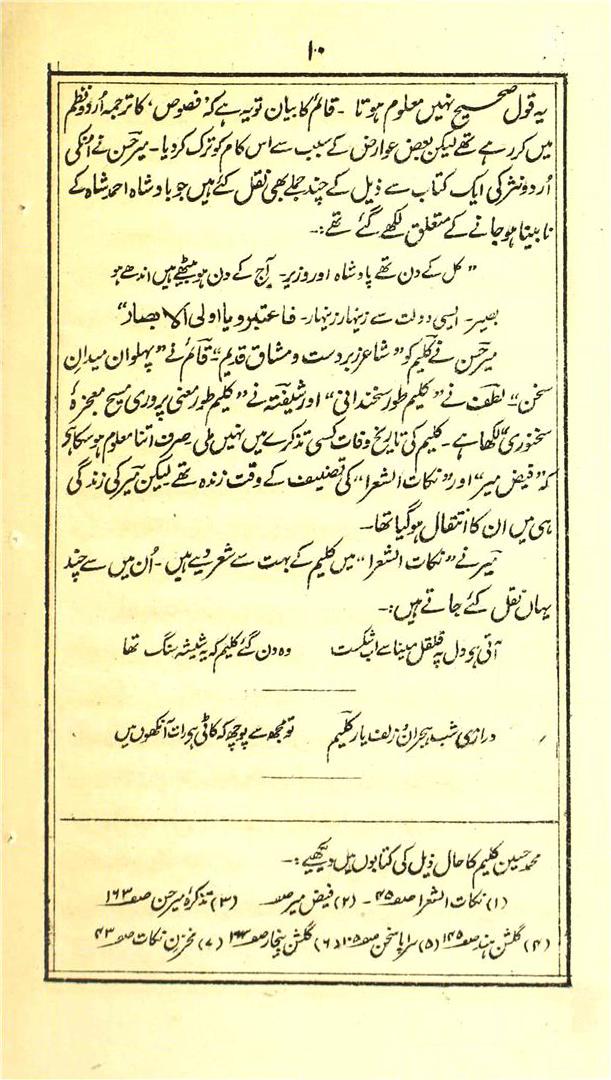 ۱۰
یہ قول صحیح نہیں معلوم ہوتا - قائم کا بیان تو یہ ہے کہ ’فصوص‘ کا ترجمہ اُردو نظم
میں کر رہے تھے لیکن بعض عوارض کے سبب سے اس کام کو ترک کر دیا - میر حسن نے انکی
اُردو نثر کی ایک کتاب سے ذیل کے چند جملے بھی نقل کئے ہیں جو بادشاہ احمد شاہ کے
نابینا ہو جانے کے متعلق لکھے گئے تھے :-
”کل کے دن تھے پادشاہ اور وزیر - آج کے دن ہو بیٹھے ہیں اندھے ہو
بصیر - ایسی دولت سے زینہار زینہار - فاعتبرو یا اولی الابصار“
میر حسن نے کلیم کو ”شاعر زبردست و مشاق قدیم“ قائم نے ”پہلوان میدان
سخن“ - لطف نے ”کلیم طور سخندانی“ اور شیفتہ نے ”کلیم طور معنی پروری مسیح معجزۂ
سخنوری“ لکھا ہے - کلیم کی تاریخ وفات کسی تذکرے میں نہیں ملی صرف اتنا معلوم ہو سکا ہے
کہ ”فیض میر“ اور ”نکات الشعرا“ کی تصنیف کے وقت زندہ تھے لیکن میر کی زندگی
ہی میں ان کا انتقال ہو گیا تھا -
میر نے ”نکات الشعرا“ میں کلیم کے بہت سے شعر دیے ہیں - اُن میں سے چند
یہاں نقل کئے جاتے ہیں :-
آتی ہے دل پہ قلقل مینا سے اب شکست وہ دن گئے کلیم کہ یہ شیشہ سنگ تھا
درازی شب ہجران و زلف یار کلیم تو مجھ سے پوچھ کہ کاٹی ہے رات آنکھوں میں
محمد حسین کلیم کا حال ذیل کی کتابوں میں دیکھیے :-
(۱) نکات الشعرا صفہ ۴۵ - (۲) فیض میر صفہ (۳) تذکرۂ میر حسن صفہ ۱۶۳
(۴) گلشن ہند صفہ ۱۴۵ (۵) سراپا سخن صفہ ۱۰۵ (۶) گلشن بیخار صفہ ۱۶۴ (۷) مخزن نکات صفہ ۴۳